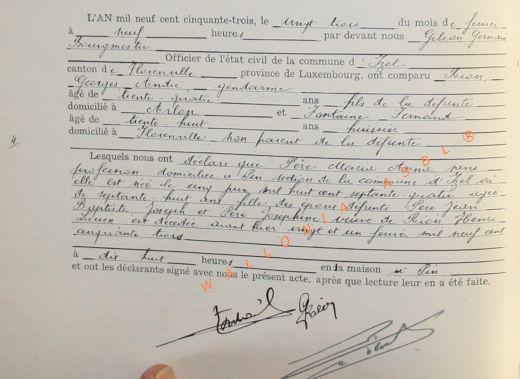 L'AN mil neuf cent cinquante-trois, le vingt trois du mois de fevrier
à neuf heures par devant nous Gilson Germain
Bourgmestre
Officier de l'état civil de la commune d'Izel
canton de Florenville province de Luxembourg, ont comparu Rion,
Georges, Andre, gendarme
âgé de trente quatre ans fils de la défunte
domicilié à Arlon et Fontaine Fernand
âgé de trente huit ans huissier
domicilié à Florenville non parent de la défunte
4
Lesquels nous ont déclaré que Père Maria sans
profession domiciliée à Pin section de la commune d'Izel où
elle est née le cinq juin mil huit cent septante quatre agée
de septante huit ans fille des époux défunts Père Jean
Baptiste Joseph et Père Josephine veuve de Rion Henri
Lucien est décédée avant hier vingt et un février mil neuf cent
cinquante trois
à dix huit heures en la maison à Pin
et ont les déclarants signé avec nous le présent acte, après que lecture leur en a été faite.
WALLONIA ASBL ®